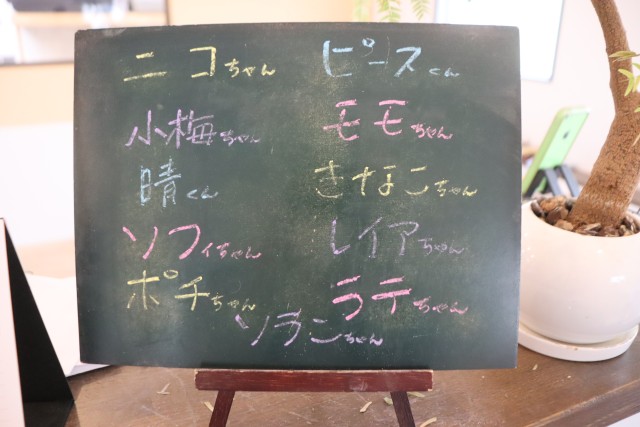 ニコちゃん ピースくん
小梅ちゃん モモちゃん
晴くん きなこちゃん
ソフィちゃん レイアちゃん
ポチちゃん ラテちゃん
ソランちゃん